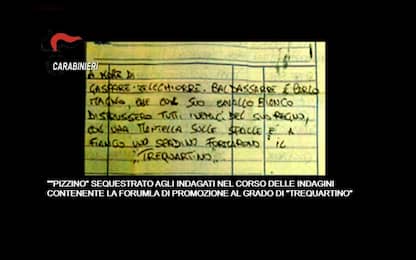 CARABINIERI
A NOME DI
GASPARE - BALDASSARRE E CARLO
MAGNO, CHE COL SUO CAVALLO BIANCO
DISTRUSSERO TUTTI I NEMICI DEL SUO REGNO,
CON UNA MANTELLA SULLE SPALLE E A
FIANCO UNO SPADINO IL
"TREQUARTINO"
""PIZZINO" SEQUESTRATO AGLI INDAGATI NEL CORSO DELLE INDAGINI
CONTENENTE LA FORUMLA DI PROMOZIONE AL GRADO DI "TREQUARTINO"